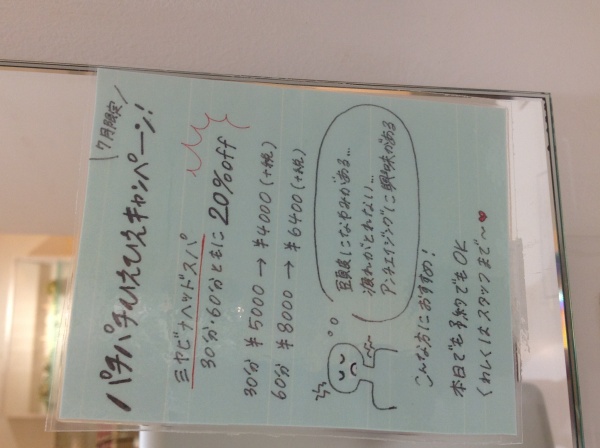 \ 7月限定 /
パチパチひえひえキャンペーン!
ミヤビナヘッドスパ
30分・60分ともに 20%off
30分 ¥5000 → ¥4000 (+税)
60分 ¥8000 → ¥6400 (+税)
頭皮になやみがある…
疲れがとれない…
アンチエイジングに興味がある
こんな方におすすめ!
本日でも予約でもOK
くわしくはスタッフまで〜♥